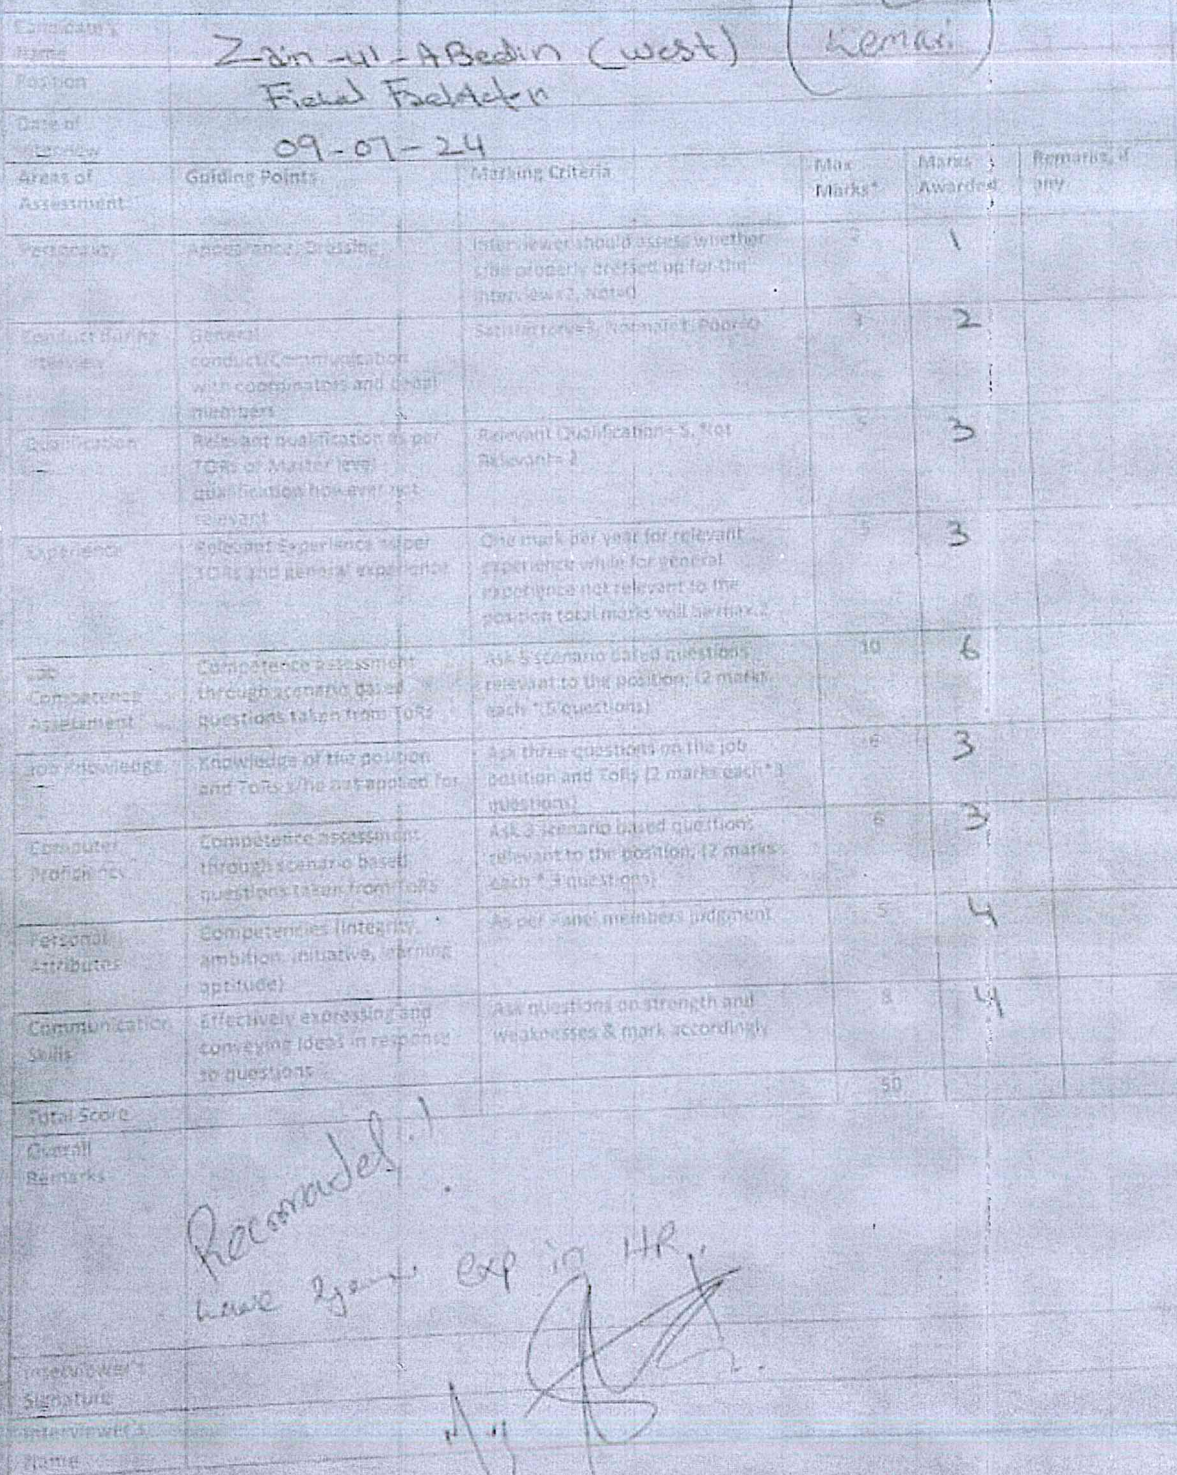 Candidate's
Name
Zain-ul-ABedin (West)
Kemari
Position
Field
Date of
Interview
09-07-24
Areas of
Assessment
Guiding Points
Marking Criteria
Max
Marks*
Marks
Awarded
Remarks, if
any
Personality
Appearance, Dressing
Interviewer should assess whether
s/he properly dressed up for the
interview=2, Not=0
2
1
Conduct during
interview
General
conduct/Communication
with coordinators and panel
members
Satisfactory=3, Normal=1, Poor=0
3
2
Qualification
Relevant qualification as per
TORs or Master level
qualification however not
relevant
Relevant Qualification= 5, Not
Relevant= 2
5
3
Experience
Relevant Experience as per
TORs and general experience
One mark per year for relevant
experience while for general
experience not relevant to the
position total marks will be max 2
5
3
Job
Competence
Assessment
Competence assessment
through scenario based
questions taken from ToRs
Ask 5 scenario based questions
relevant to the position, (2 marks
each *5 questions)
10
6
Job Knowledge
Knowledge of the position
and ToRs s/he has applied for
Ask three questions on the job
position and ToRs (2 marks each*3
questions)
6
3
Computer
Proficiency
Competence assessment
through scenario based
questions taken from ToRs
Ask 3 scenario based questions
relevant to the position, (2 marks
each * 3 questions)
6
3
Personal
Attributes
Competencies (integrity,
ambition, initiative, learning
aptitude)
As per Panel members judgment
5
4
Communication
Skills
Effectively expressing and
conveying ideas in response
to questions
Ask questions on strength and
weaknesses & mark accordingly
8
4
Total Score
50
Overall
Remarks
have 2years exp in HR.
Interviewer's
Signature
Interviewer's
Name